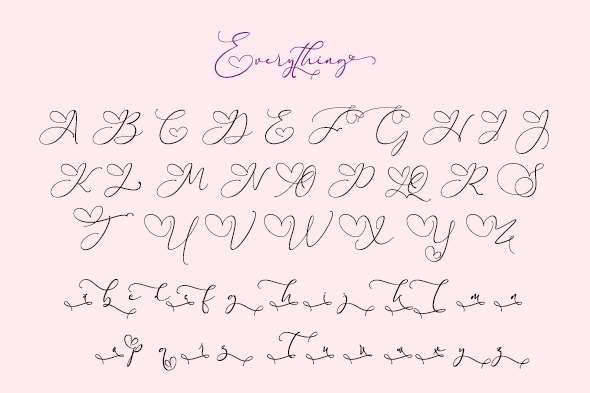 Everything
A B C D E F G H I J
K L M N O P Q R S
T U V W X Y Z
a b c d e f g h i j k l m n
o p q r s t u v w x y z